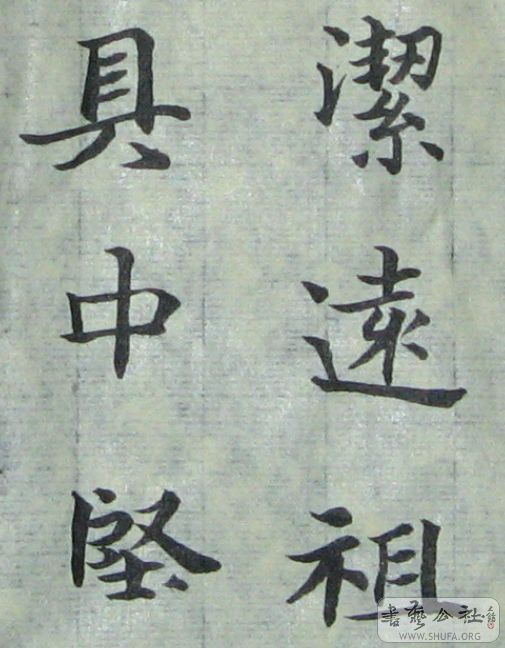 潔遠祖
具中堅
書藝公社
WWW.SHUFA.ORG